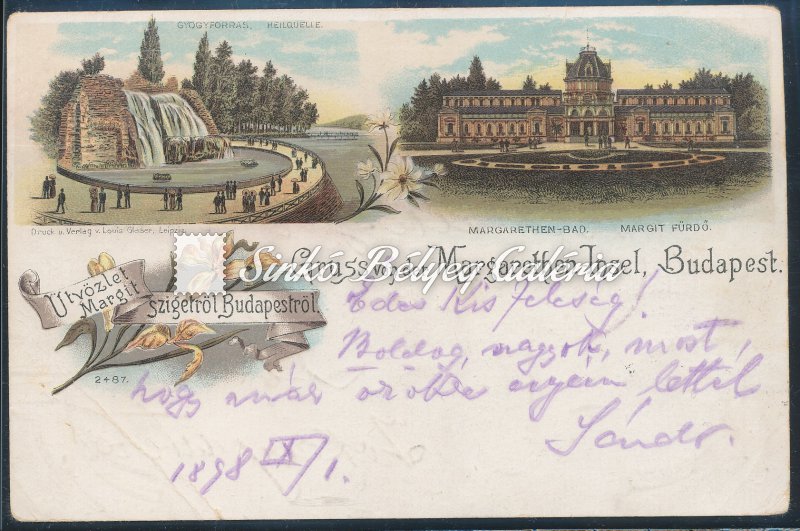 GYÓGYFORRÁS. HEILQUELLE.
Druck u. Verlag v. Louis Glaser, Leipzig
MARGARETHEN-BAD. MARGIT FÜRDŐ.
Gruss von der Margarethen-Insel, Budapest.
Sinkó Bélyeg Galléria
Üdvözlet
Margit
szigetről Budapestről.
2487.
Édes Kis Feleség!
Boldog vagyok, most,
hogy már örökre enyém lettél
Sándor.
1898 IX/1.